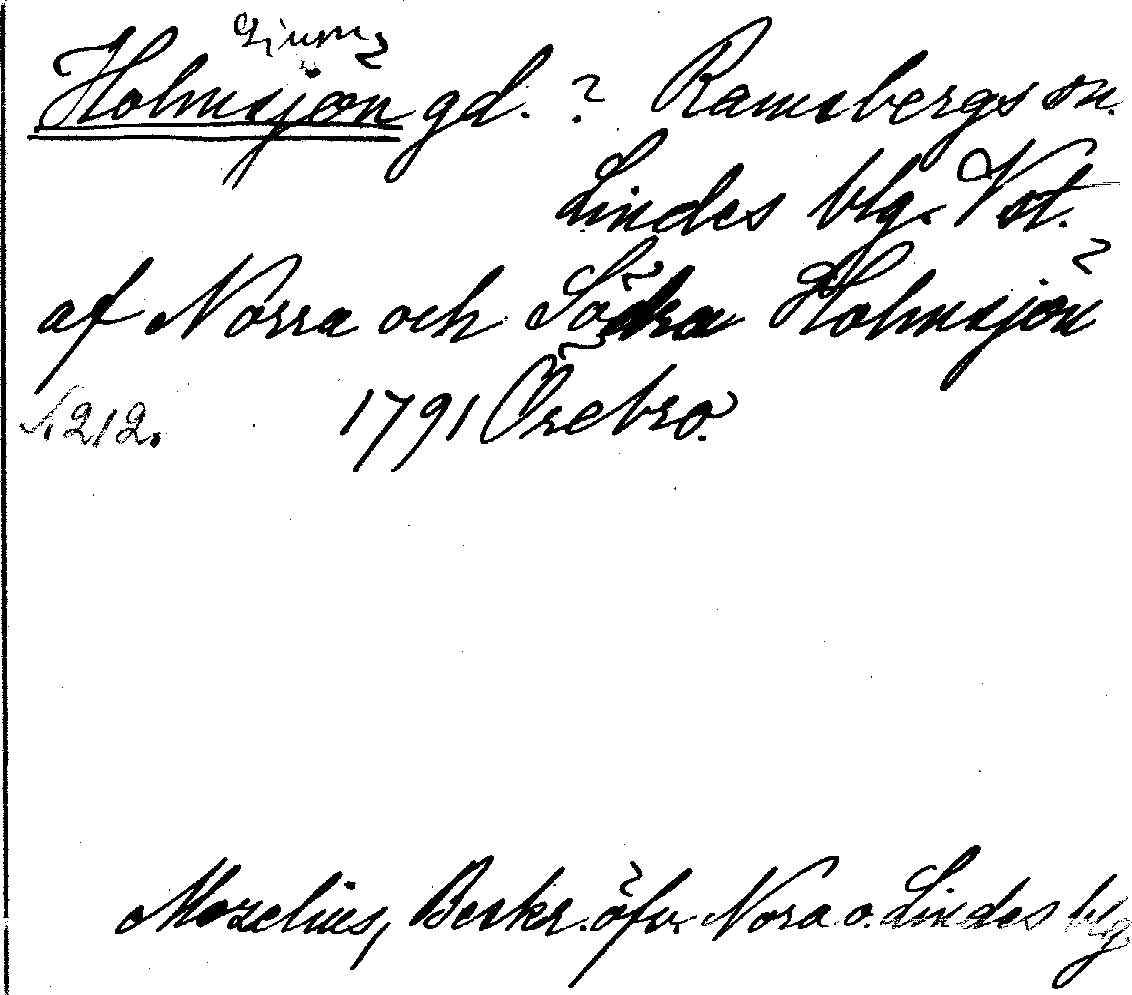 Holmsjön gd. ? Ramsbergs sn.
Lindes blg. Vst.
af Norra och Södra Holmsjön
S. 212. 1791 Örebro.
Mozelius, Beskr. öfv. Nora o. Lindes blg.